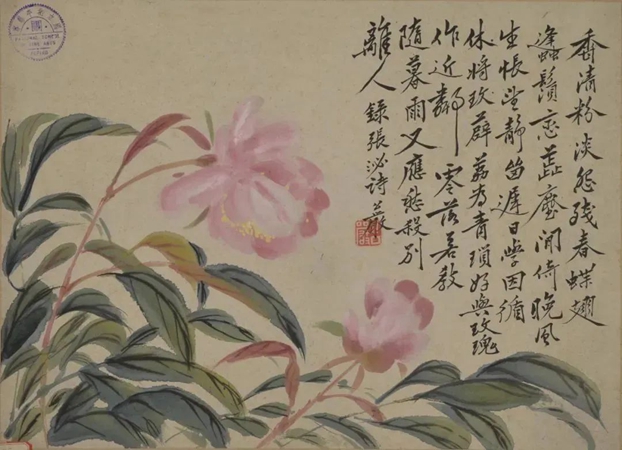 香清粉淡怨殘春蝶翅
蠭鬚戀蕊塵閒倚晚風
生悵望靜留遲日學因循
休將玫薜荔為青瑣好與玫瑰
作近鄰零落若教
隨暮雨又應愁殺別
離人 錄張泌詩